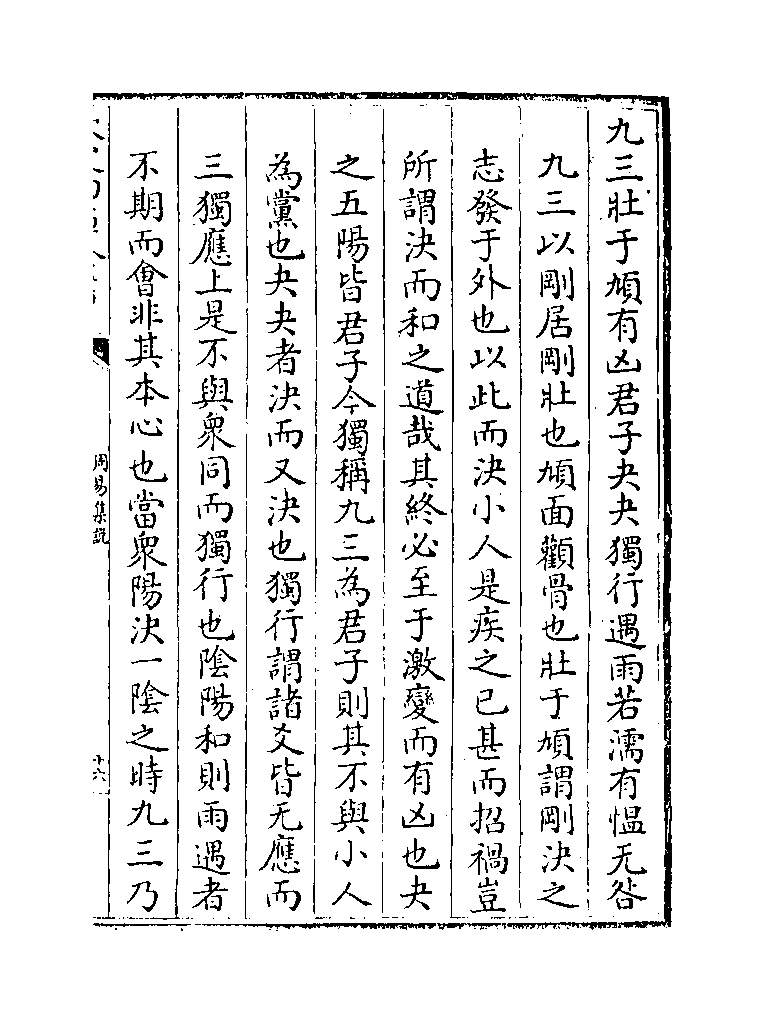 九三壯于頄有凶君子夬夬獨行遇雨若濡有愠无咎
九三以剛居剛壯也頄面顴骨也壯于頄謂剛決之
志發于外也以此而決小人是疾之已甚而招禍豈
所謂決而和之道哉其終必至于激變而有凶也夬
之五陽皆君子今獨稱九三為君子則其不與小人
為黨也夬夬者決而又決也獨行謂諸爻皆无應而
三獨應上是不與衆同而獨行也陰陽和則雨遇者
不期而會非其本心也當衆陽決一陰之時九三乃
周易集說
十六